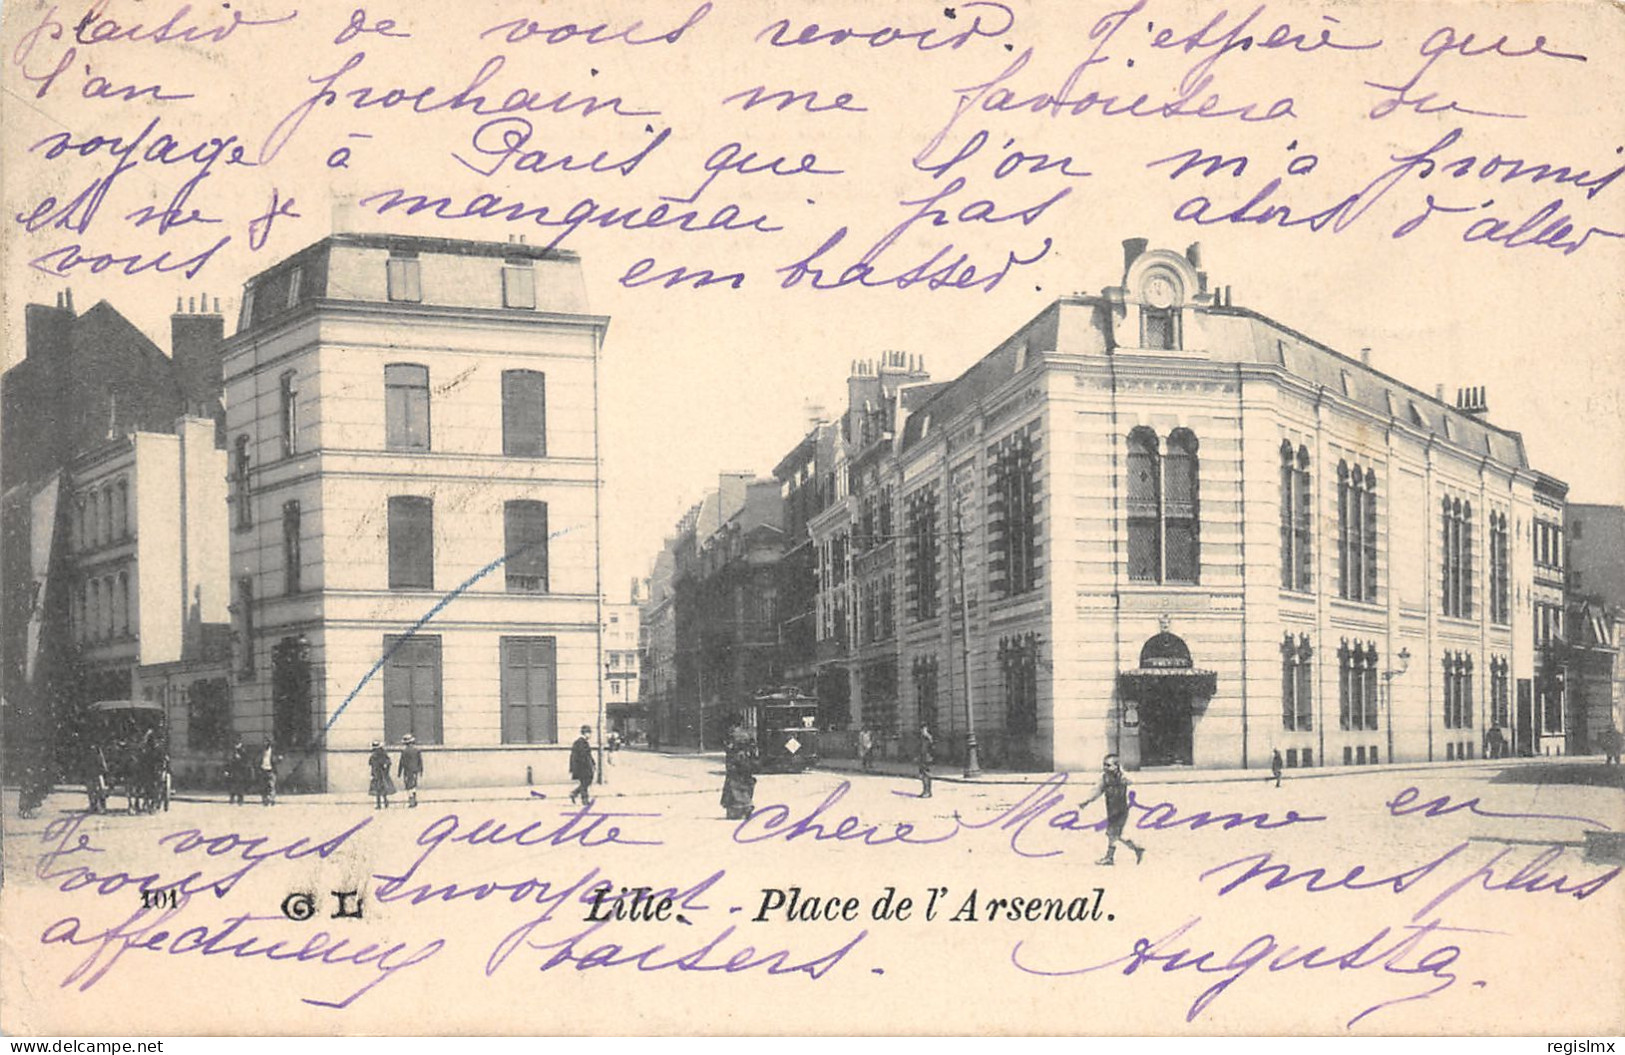 plaisir de vous revoir. J'espère que
l'an prochain me favorisera du
voyage à Paris que l'on m'a promis
et ne je manquerai pas alors d'aller
vous embrasser.
Je vous quitte chère Madame en
vous envoyant mes plus
101 GL Lille. - Place de l'Arsenal.
affectueux baisers.
Augusta.
delcampe.net
regislmx